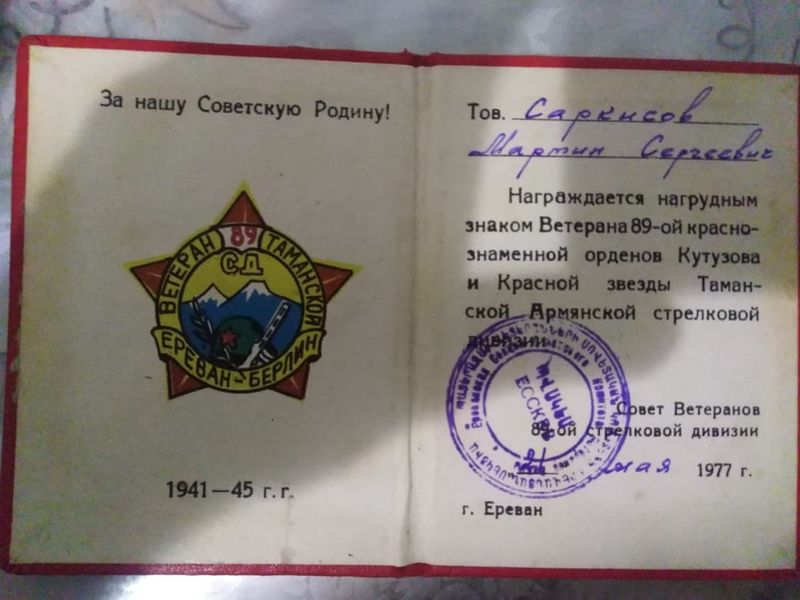 За нашу Советскую Родину!
ВЕТЕРАН 89 ТАМАНСКОЙ
СД
ЕРЕВАН-БЕРЛИН
1941—45 г.г.
Тов. Саркисов
Мартин Сергеевич
Награждается нагрудным
знаком Ветерана 89-ой красно-
знаменной орденов Кутузова
и Красной звезды Таман-
ской Армянской стрелковой
дивизии
ЕССКВВ
Совет Ветеранов
89-ой стрелковой дивизии
мая 1977 г.
г. Ереван